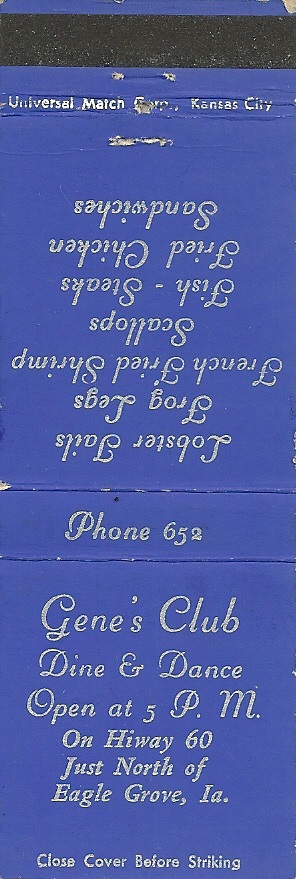 Universal Match Corp., Kansas City
Lobster Tails
Frog Legs
French Fried Shrimp
Scallops
Fish - Steaks
Fried Chicken
Sandwiches
Phone 652
Gene's Club
Dine & Dance
Open at 5 P. M.
On Hiway 60
Just North of
Eagle Grove, Ia.
Close Cover Before Striking